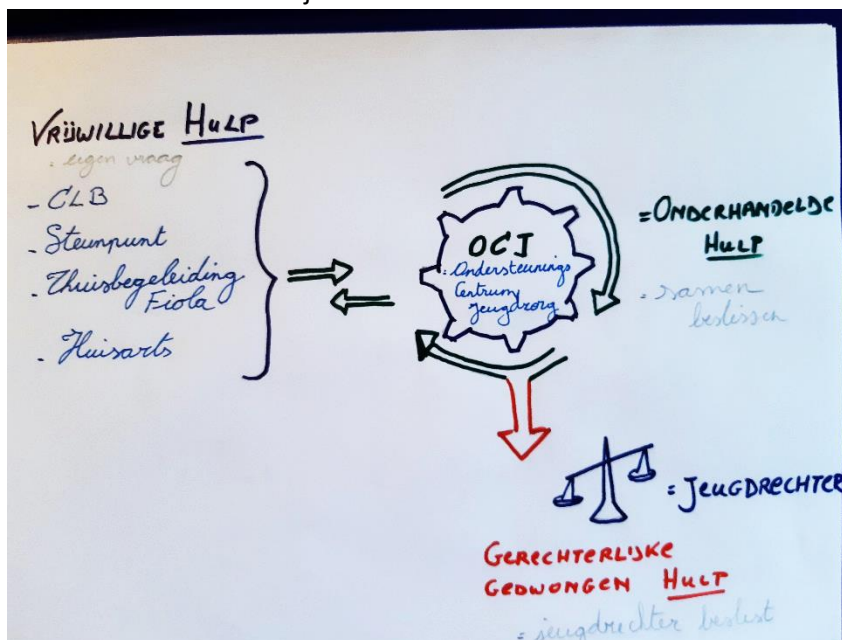 VRIJWILLIGE HULP
· eigen vraag
- CLB
- Steunpunt
- Thuisbegeleiding
Fiola
- Huisarts
OCJ
= Ondersteunings
Centrum
Jeugdzorg
= ONDERHANDELDE
HULP
· samen
beslissen
= JEUGDRECHTER
GERECHTERLIJKE
GEDWONGEN HULP
= jeugdrechter beslist